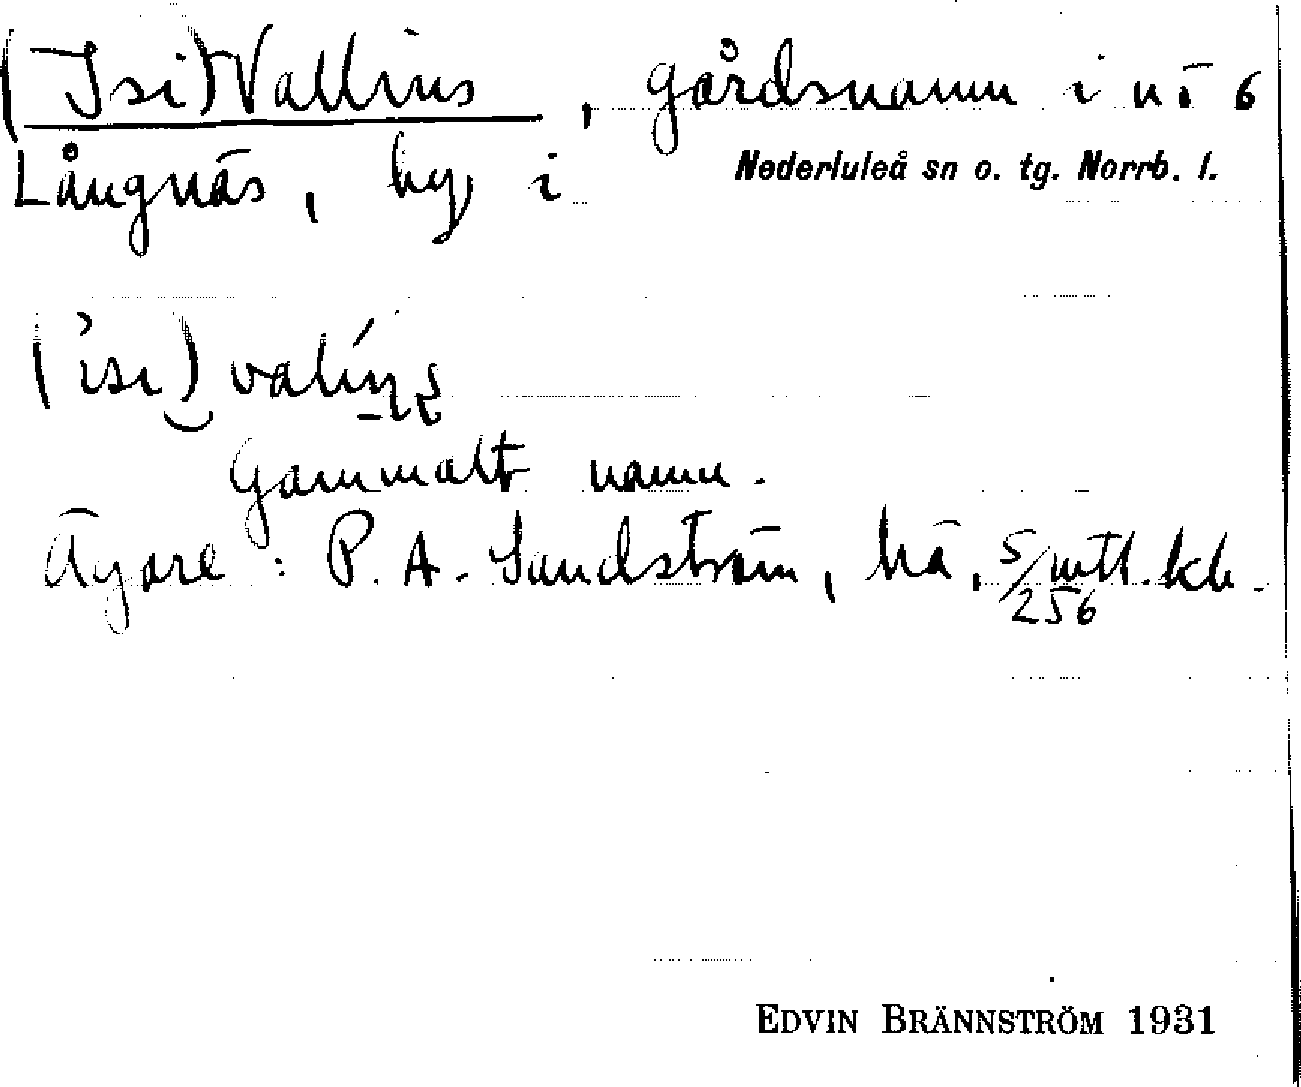 (Isi)Vallins, gårdsnamn i nr 6
Långnäs, by i Nederluleå sn o. tg. Norrb. l.
(isi) valins
Gammalt namn.
Ägare: P. A. Sundström, 5/256 mtl. kb.
EDVIN BRÄNNSTRÖM 1931